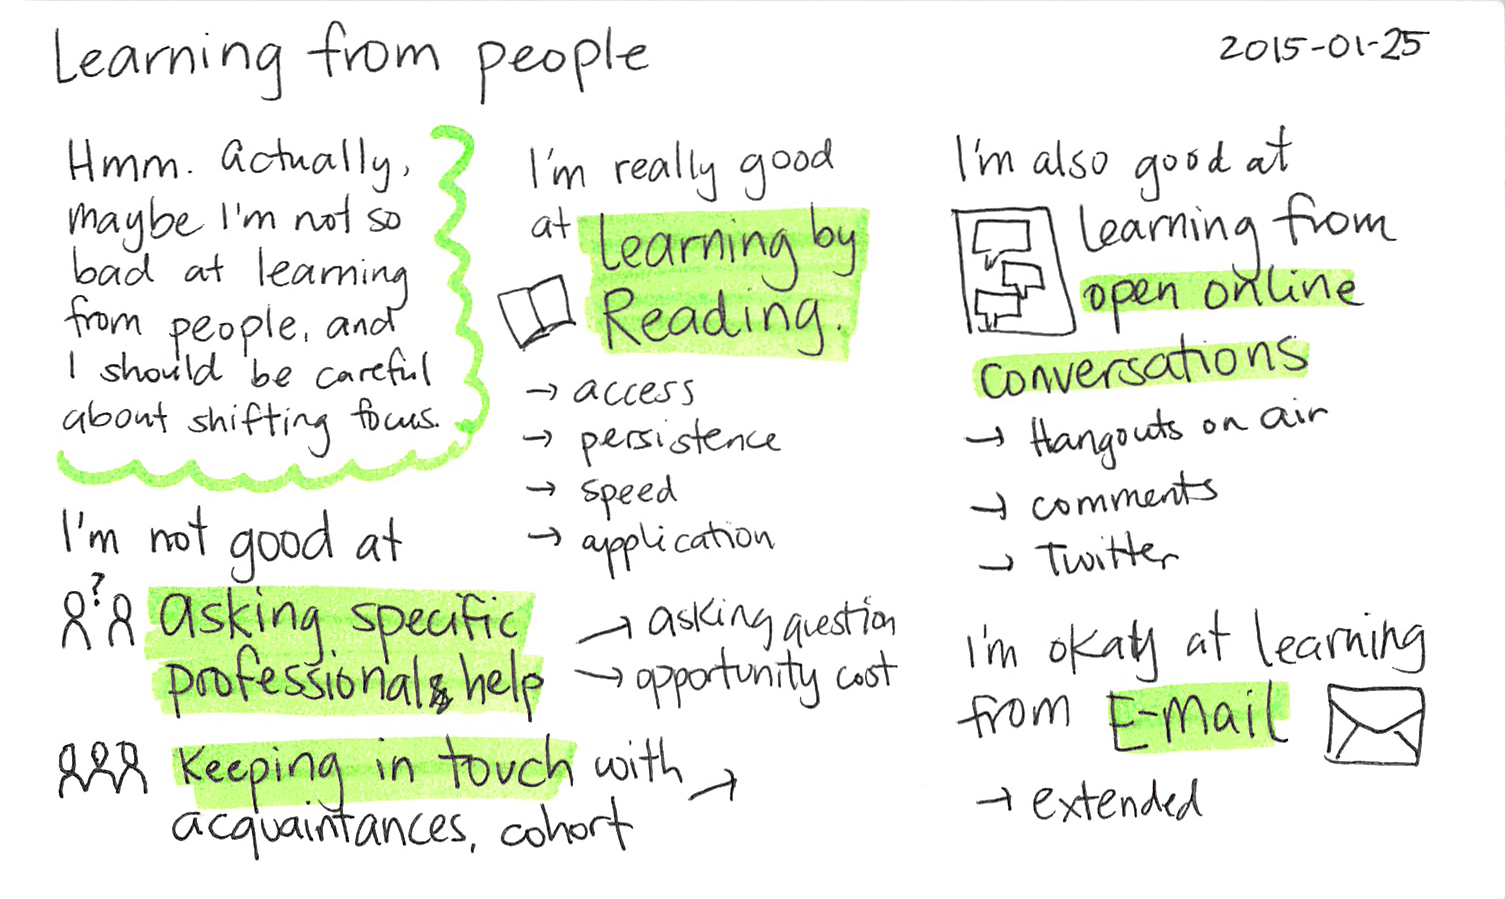 Learning from people
2015-01-25
Hmm. Actually,
maybe I'm not so
bad at learning
from people, and
I should be careful
about shifting focus.
I'm not good at
?
asking specific
professional help
→ asking question
→ opportunity cost
Keeping in touch with →
acquaintances, cohort
I'm really good
at Learning by
Reading.
→ access
→ persistence
→ speed
→ application
I'm also good at
learning from
open online
conversations
→ Hangouts on air
→ comments
→ Twitter
I'm okay at learning
from E-mail
→ extended